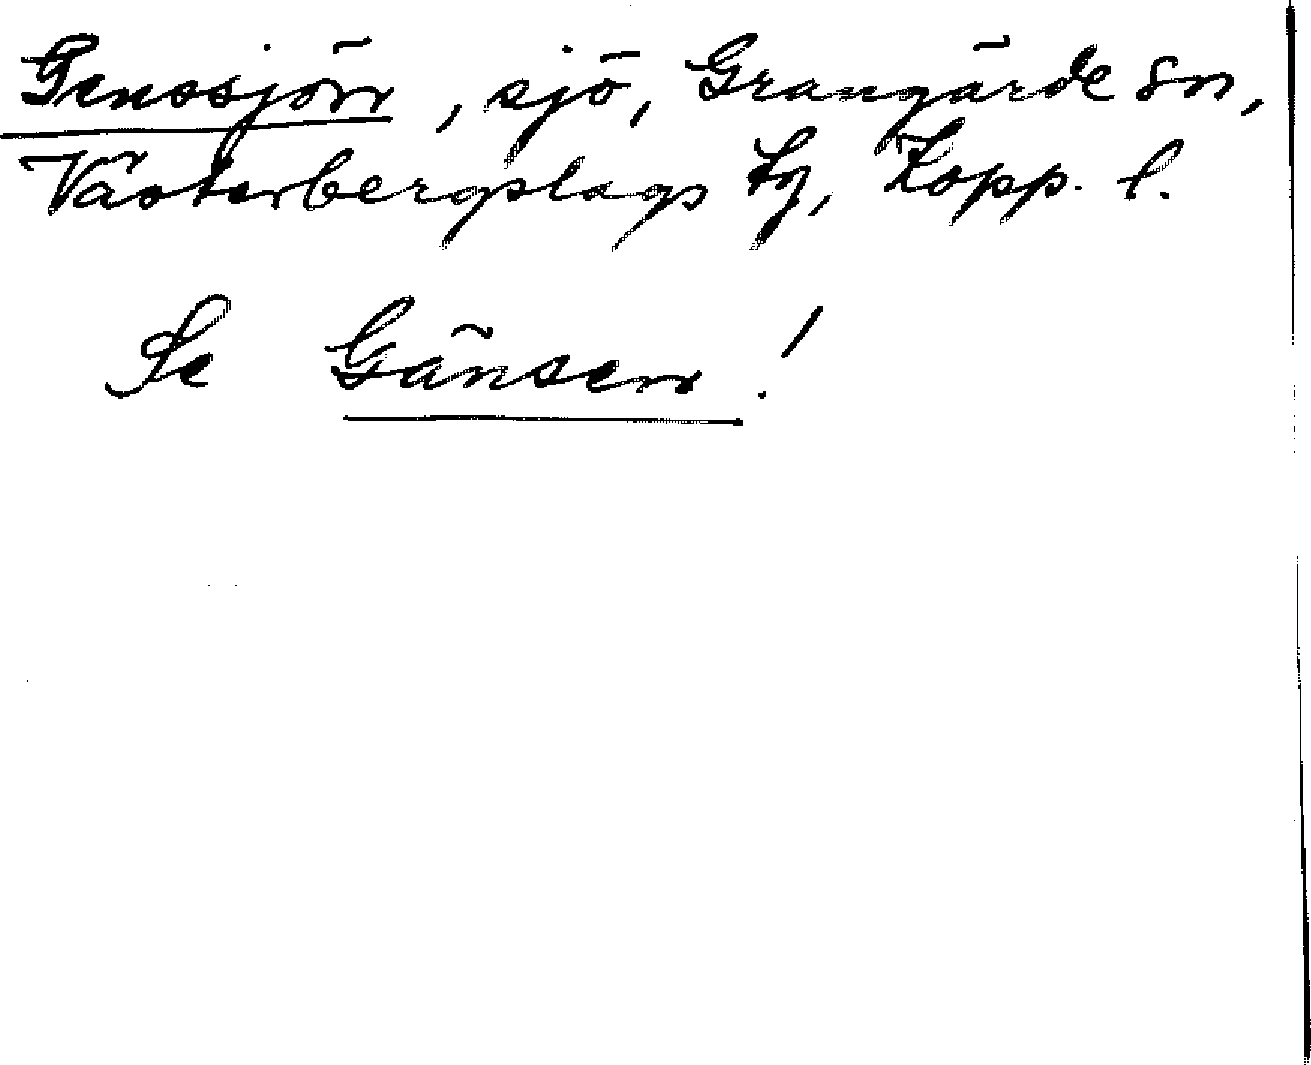 Genssjön, sjö, Grangärde sn,
Västerbergslags tg, Kopp. l.
Se Gänsen!